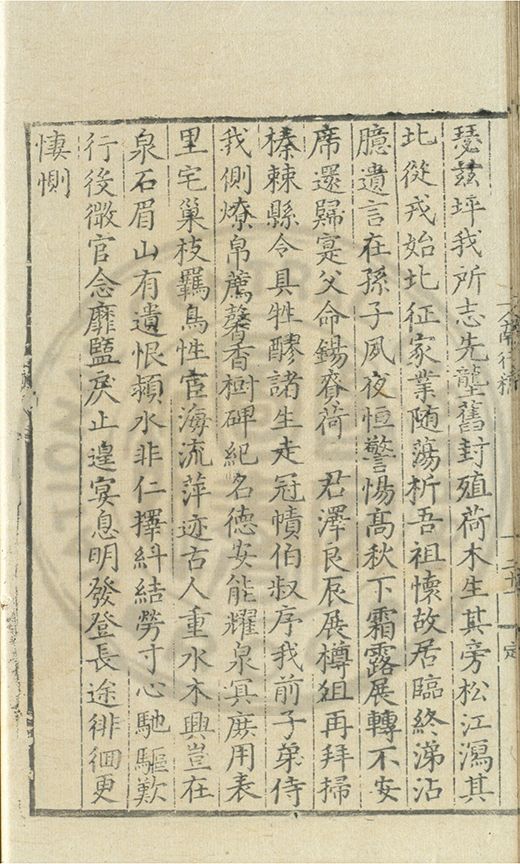 瑟茲坪我所志先壟舊封殖荷木生其旁松江瀉其
北從戎始北征家業随蕩析吾祖懷故居臨終涕沾
臆遺言在孫子夙夜恒警惕高秋下霜露展轉不安
席還歸寔父命錫賚荷 君澤良辰展樽俎再拜掃
榛棘縣令具牲醪諸生走冠幘伯叔序我前子弟侍
我側燎帛薦馨香樹碑紀名德安能耀泉冥庶用表
里宅巢枝羈鳥性宦海流萍迹古人重水木興豈在
泉石眉山有遺恨潁水非仁擇糾結勞寸心馳驅歎
行後微官念靡盬戾止遑宴息明發登長途徘徊更
悽惻